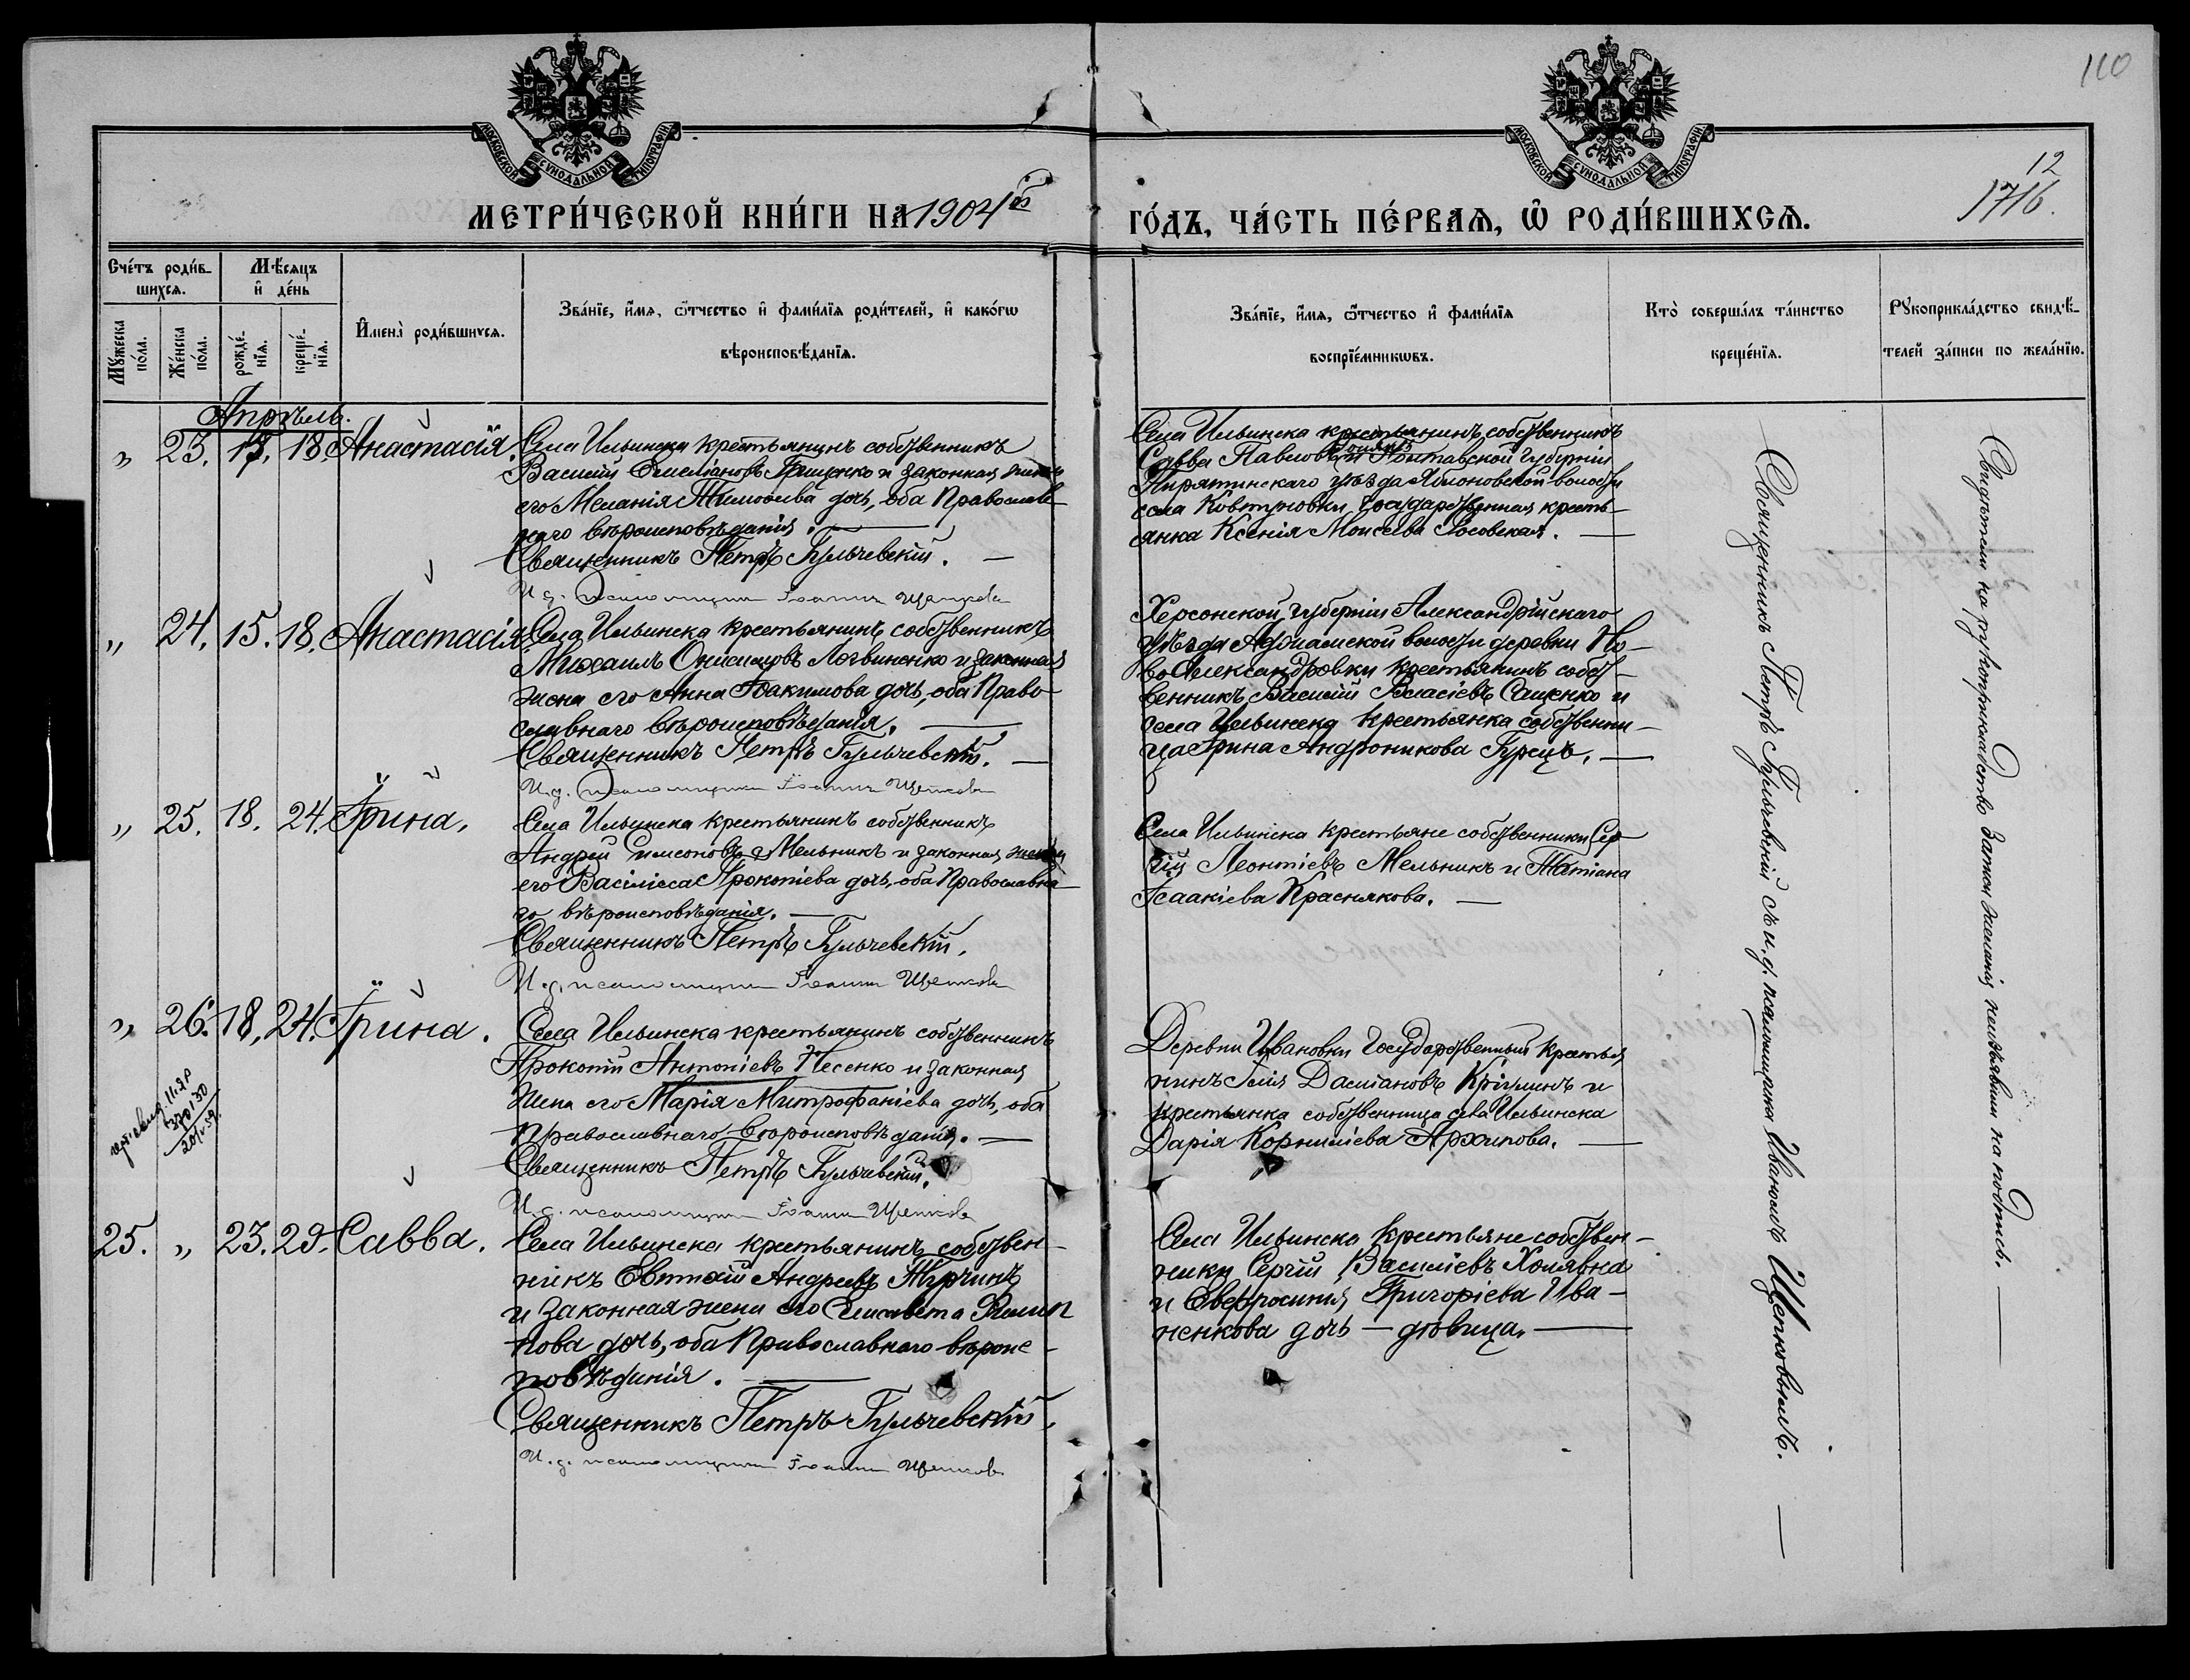 110
МОСКОВСКОЙ СѴНОДАЛЬНОЙ ТИПОГРАФІИ
МОСКОВСКОЙ СѴНОДАЛЬНОЙ ТИПОГРАФІИ
12
1716.
МЕТРИ́ЧЕСКОЙ КНИ́ГИ НА 1904й
ГО́ДЪ, ЧА́СТЬ ПЕ́РВАѦ, Ѽ РОДИ́ВШИХСѦ.
Сче́тъ роди́в-
шихсѧ.
Мѣ́сяцъ
и҆ де́нь
Мꙋ́жеска
по́ла.
Же́нска
по́ла.
рожде́-
нїѧ.
креще́-
нїѧ.
И҆мена̀ роди́вшихсѧ.
Зва́нїе, и҆́мѧ, ѻ҆́тчество и҆ фами́лїѧ роди́телей, и҆ како́гѡ
вѣроисповѣ́данїѧ.
Зва́нїе, и҆́мѧ, ѻ҆́тчество и҆ фами́лїѧ
воспрїе́мникѡвъ.
Кто̀ соверша́лъ та́инство
креще́нїѧ.
Рꙋкоприкла́дство свидѣ́-
телей за́писи по жела́нїю.
Апрѣль.
„ 23. 17. 18. Анастасія.
Села Ильинска крестьянинъ собственникъ
Василій Емеліановъ Грищенко и законная жена
его Меланія Тимофеева дочь, оба Православ-
наго вѣроисповѣданія.
Священникъ Петръ Бульчевскій.
И. д. псаломщика Іоаннъ Щепковъ
Села Ильинска крестьянинъ собственникъ
Савва Павловъ и Полтавской губерніи
Пирятинскаго уѣзда Яблоновской волости
села Ковтуновки государственная кресть-
янка Ксенія Моисеева Лосовская.
„ 24. 15. 18. Анастасія
Села Ильинска крестьянинъ собственникъ
Михаилъ Онисимовъ Логвиненко и законная
жена его Анна Іоакимова дочь, оба Право-
славнаго вѣроисповѣданія.
Священникъ Петръ Бульчевскій.
И. д. псаломщика Іоаннъ Щепковъ
Херсонской губерніи Александрійскаго
уѣзда волости деревни Но-
во Александровки крестьянинъ собст-
венникъ Василій Власіевъ Сащенко и
села Ильинска крестьянка собственни-
ца Ирина Андроникова Гурецъ.
„ 25. 18. 24. Ирина.
Села Ильинска крестьянинъ собственникъ
Андрей Симеоновъ Мельникъ и законная жена
его Василисса Прокопіева дочь, оба Православна-
го вѣроисповѣданія.
Священникъ Петръ Бульчевскій.
И. д. псаломщика Іоаннъ Щепковъ
Села Ильинска крестьяне собственники Сер-
гій Леонтіевъ Мельникъ и Татіана
Ісаакіева Краснякова.
„ 26. 18. 24. Ирина.
Села Ильинска крестьянинъ собственникъ
Прокопій Антоніевъ Песенко и законная
жена его Марія Митрофаніева дочь, оба
Православнаго вѣроисповѣданія.
Священникъ Петръ Бульчевскій.
И. д. псаломщика Іоаннъ Щепковъ
Деревни Ивановки Государственный крестья-
нинъ Илія Даміановъ и
крестьянка собственница села Ильинска
Дарія Корниліева Архипова.
25. „ 23. 29. Савва.
Села Ильинска крестьянинъ собствен-
никъ Евтихій Андреевъ Турчинъ
и законная жена его Елисавета Филип-
пова дочь, оба Православнаго вѣроис-
повѣданія.
Священникъ Петръ Бульчевскій.
И. д. псаломщика Іоаннъ Щепковъ
Села Ильинска крестьяне собствен-
ники Сергій Василіевъ Холявка
и Евфросинія Григоріева Ива-
ненкова дочь — дѣвица.
Священникъ Петръ Бульчевскій съ и. д. псаломщика Иваномъ Щепковымъ.
Свидѣтели на рукоприкладство записи желанія неизъявили на подпись.